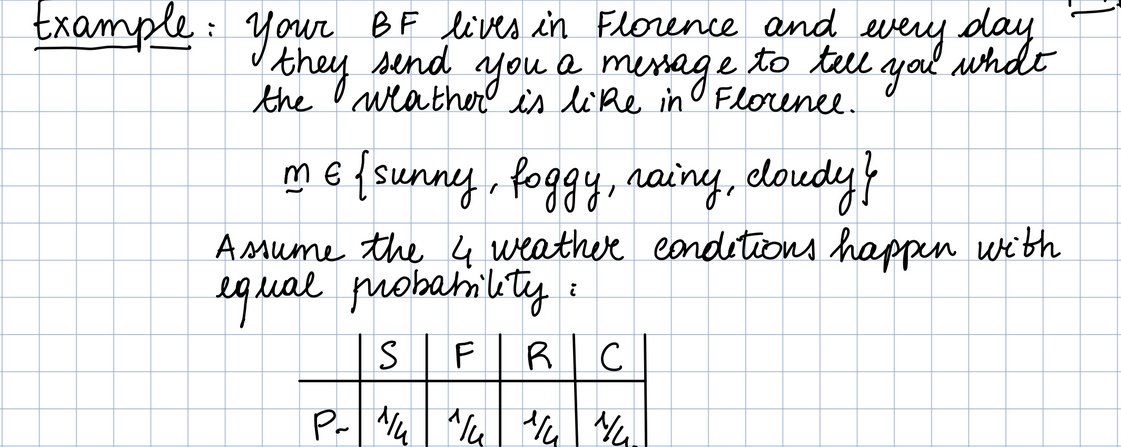 Example: Your BF lives in Florence and every day
they send you a message to tell you what
the weather is like in Florence.
m ∈ {sunny, foggy, rainy, cloudy}
Assume the 4 weather conditions happen with
equal probability:
S F R C
1/4 1/4 1/4 1/4